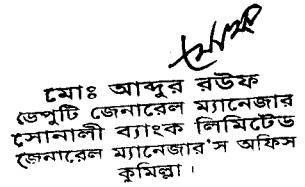 মোঃ আব্দুর রউফ
ডেপুটি জেনারেল ম্যানেজার
সোনালী ব্যাংক লিমিটেড
জেনারেল ম্যানেজার'স অফিস
কুমিল্লা ।